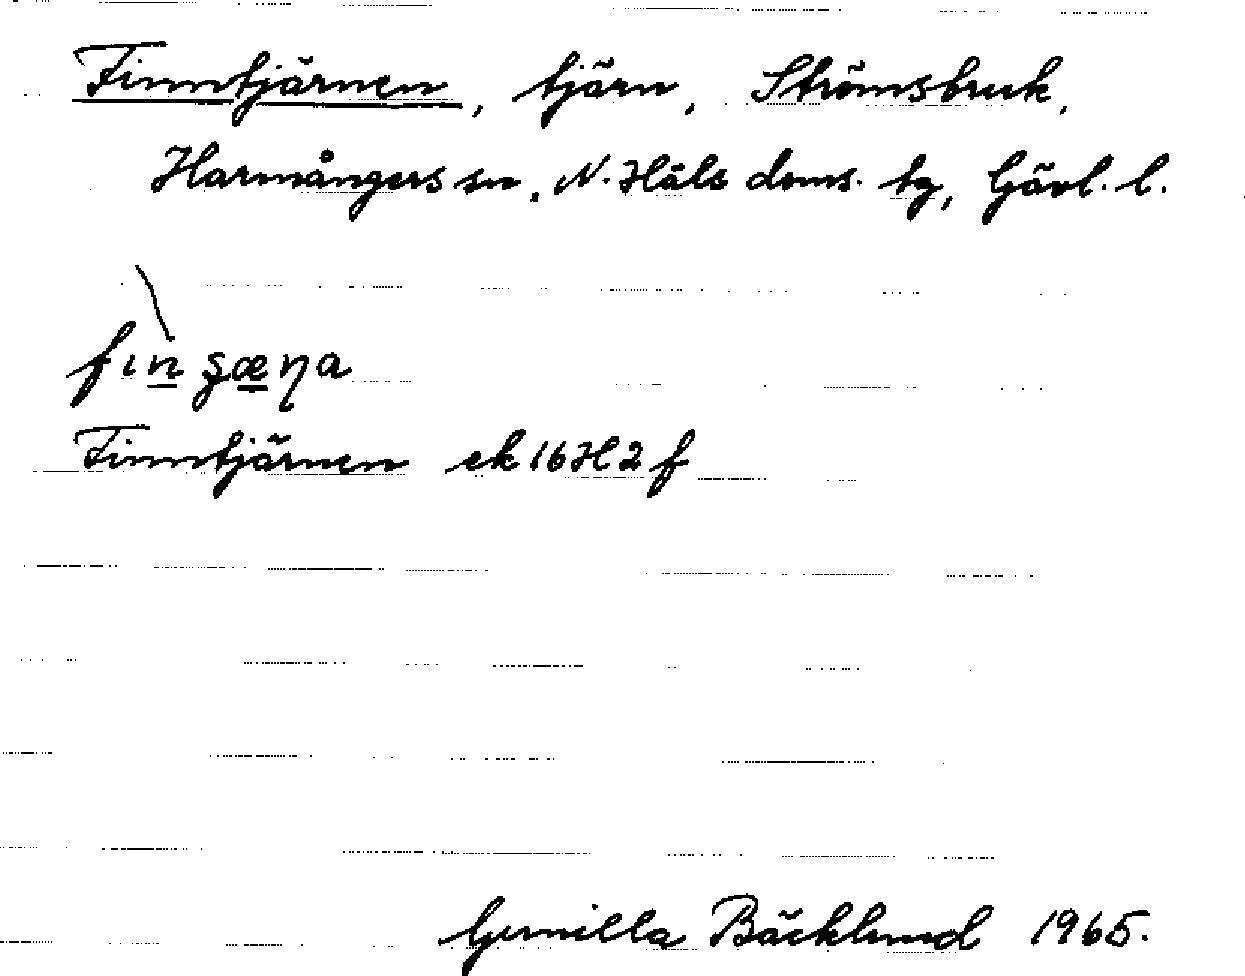 Finntjärnen, tjärn, Strömsbruk,
Harmångers sn, N. Häls doms. tg, Gävl. l.
fin̲ ʂæ̲ɳa
Finntjärnen ek 16H2f
Gunilla Bäcklund 1965.